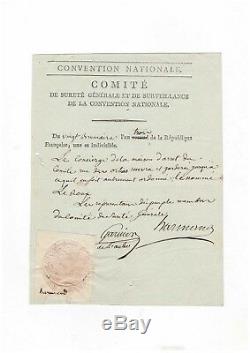 CONVENTION NATIONALE.
COMITÉ
DE SURETÉ GÉNÉRALE ET DE SURVEILLANCE
DE LA CONVENTION NATIONALE.
Du vingt l'an trois de la République
Française, une et Indivisible.
Le Concierge de la maison d'arret du
Comité rue des recevra et gardera jusqu'à
qu'il soit autrement ordonné le nommé
Le Roux
Les représentans du peuple membres
du Comité de sureté Générale